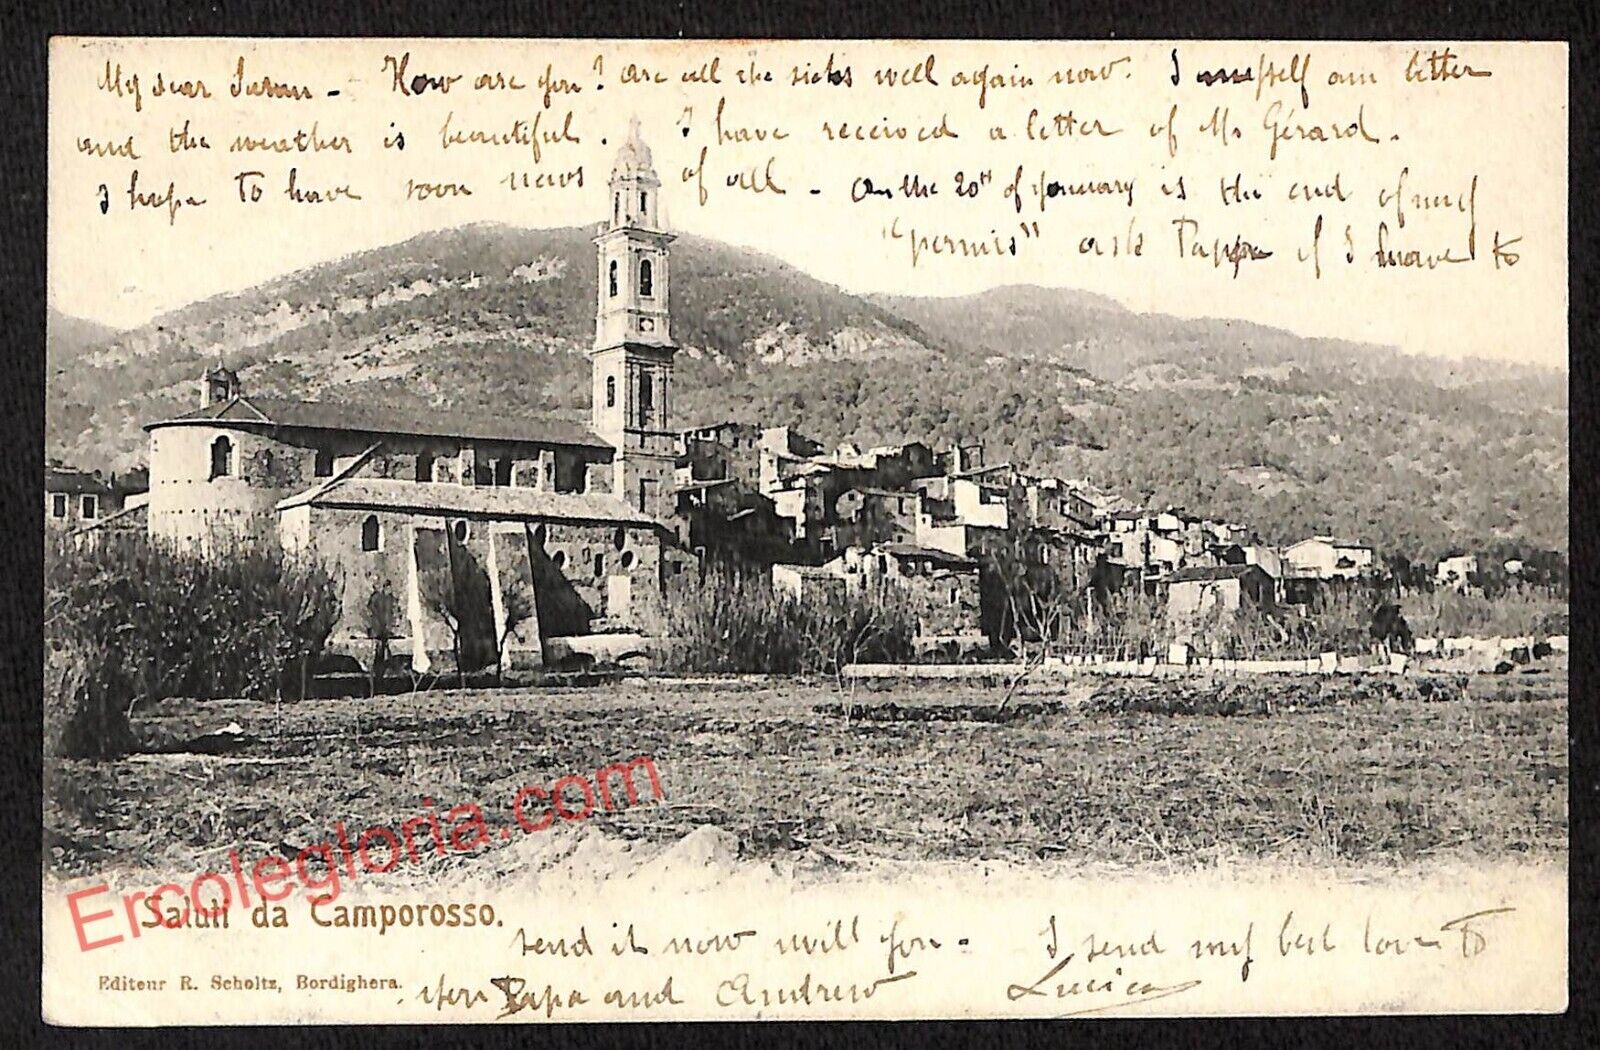 My dear Susan - How are you? are all the sicks well again now. I myself am better
and the weather is beautiful. I have received a letter of Mr Gérard.
I hope to have soon news of all - on the 20th of January is the end of my
"permis" ask Pappa if I have to
send it now will you - I send my best love to
you Papa and Andrew Lucica
Saluti da Camporosso.
Editeur R. Scholtz, Bordighera.
Ercolegloria.com